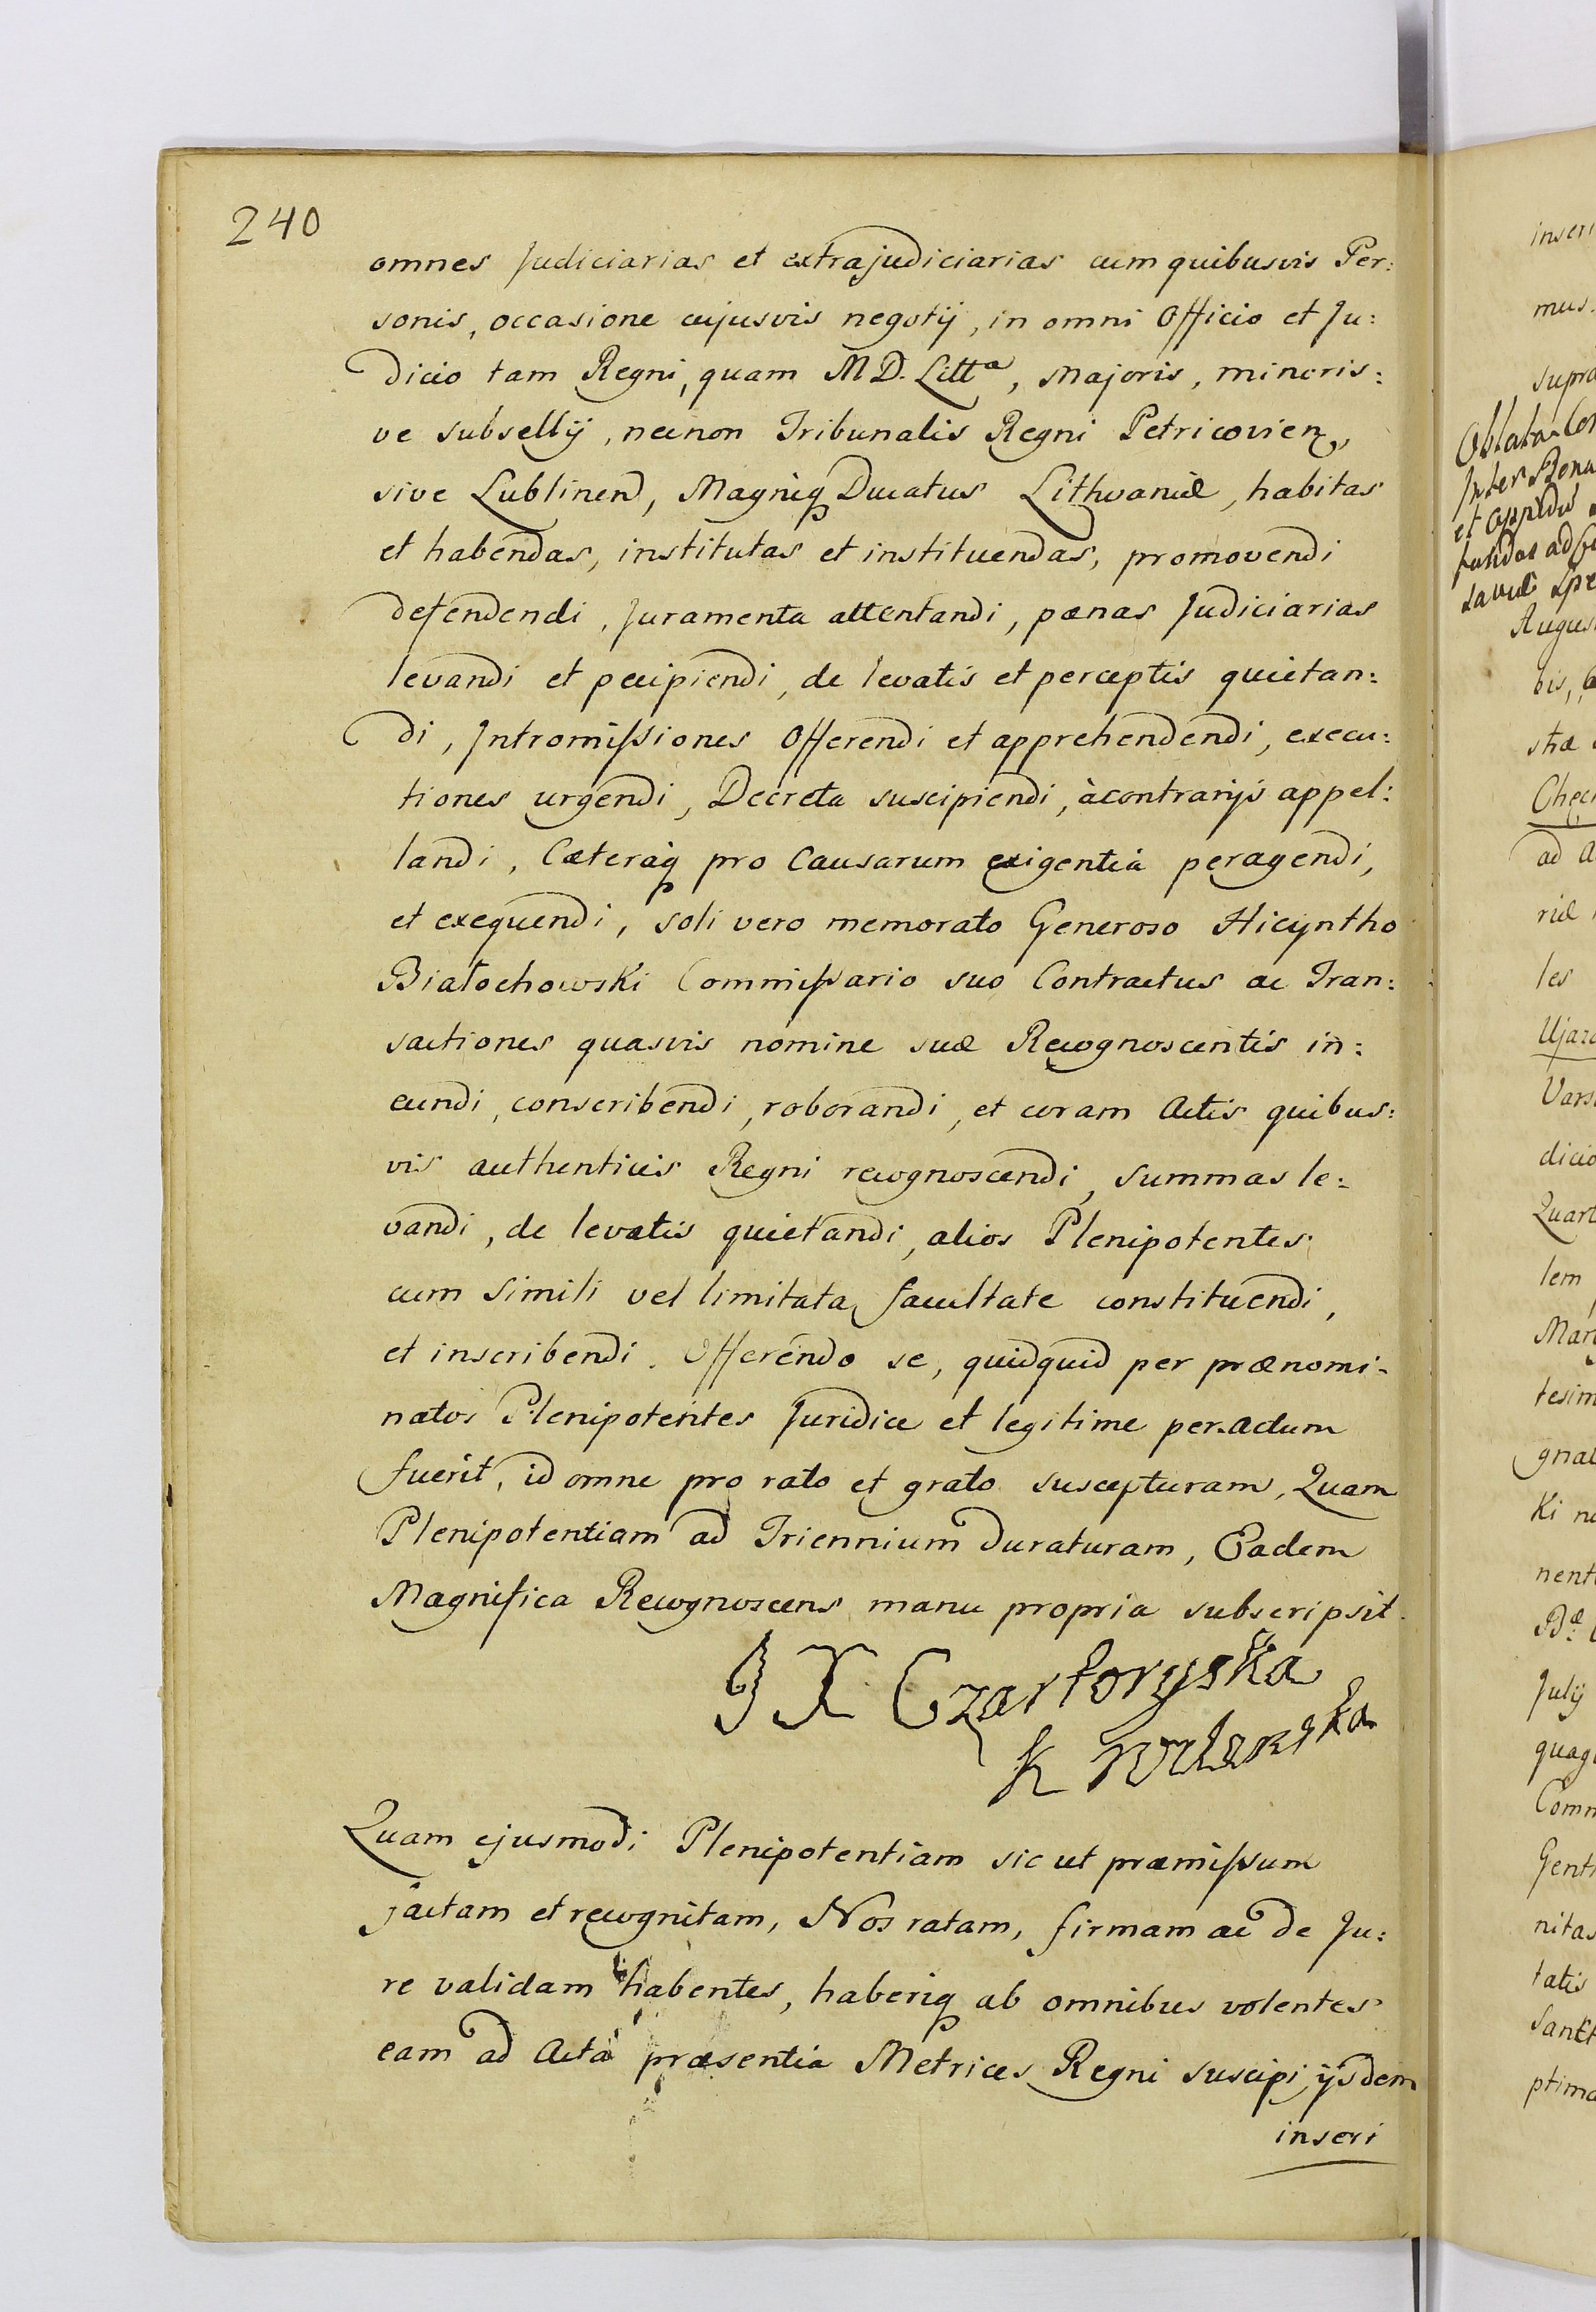 240
omnes Judiciarias et extrajudiciarias cum quibusvis Per:
sonis, occasione cujusvis negotij, in omni Officio et Ju:
dicio tam Regni, quam M D. Littª, Majoris, minoris:
ve subsellij, necnon Tribunalis Regni Petricovien,
sive Lublinen, Magniq Ducatus Lithvaniæ, habitas
et habendas, institutas et instituendas, promovendi
defendendi, Juramenta attentandi, pænas Judiciarias
levandi et pecipiendi, de levatis et perceptis quietan:
di, Intromissiones Offerendi et apprehendendi, execu:
tiones urgendi, Decreta suscipiendi, à contrarijs appel:
landi, Cæteraq pro Causarum exigentia peragendi,
et exequendi, soli vero memorato Generoso Hicyntho
Białochowski Commissario suo Contractus ac Tran:
sactiones quasvis nomine suæ Recognoscentis in:
eundi, conscribendi, roborandi, et coram Actis quibus:
vis authenticis Regni recognoscendi, summas le:
vandi, de levatis quietandi, alios Plenipotentes
cum simili vel limitata facultate constituendi,
et inscribendi. Offerendo se, quidquid per prænomi-
natos Plenipotentes Juridice et legitime peractum
fuerit, id omne pro rato et grato suscepturam, Quam
Plenipotentiam ad Triennium duraturam, Eadem
Magnifica Recognoscens manu propria subscripsit.
J X Czartoryska
K
Quam ejusmodi Plenipotentiam sic ut præmissum
factam et recognitam, Nos ratam, firmam ac de Ju:
re validam habentes, haberiq ab omnibus volentes
eam ad Acta præsentia Metrices Regni suscipi, ijsdem
inseri
inseri
mus.
supra
Oblata
Inter Bona
et oppidu
fundos ad
August
bis,
stræ
ad
riæ
les
dicio
Quart
lem
tesim
Ki
nent
Julij
quag
Comm
nitas
tatis
Sanct
ptima